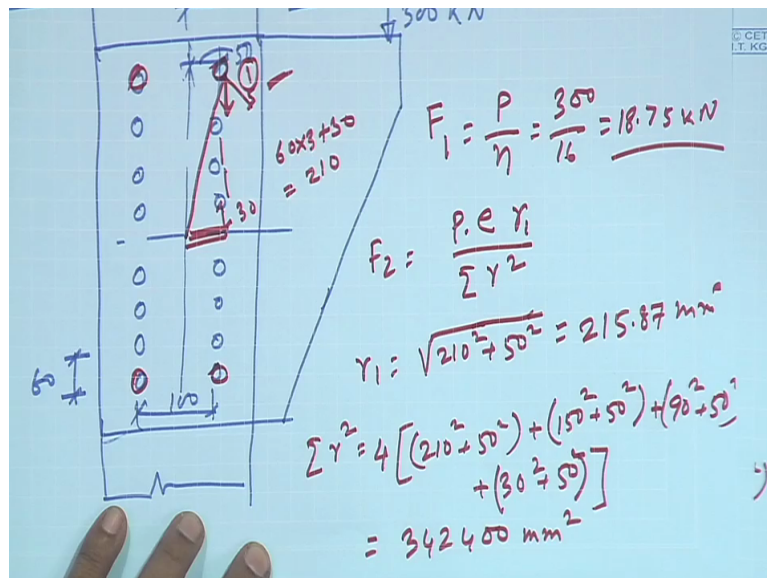 300 KN
© CET
I.T. KG
50
1
60x3+30
= 210
30
60
100
F₁ = P/n = 300/16 = 18.75 kN
F₂ = P.e r₁ / Σr²
r₁ = √210²+50² = 215.87 mm
Σr² = 4[(210²+50²)+(150²+50²)+(90²+50²)
+(30²+50²)]
= 342400 mm²